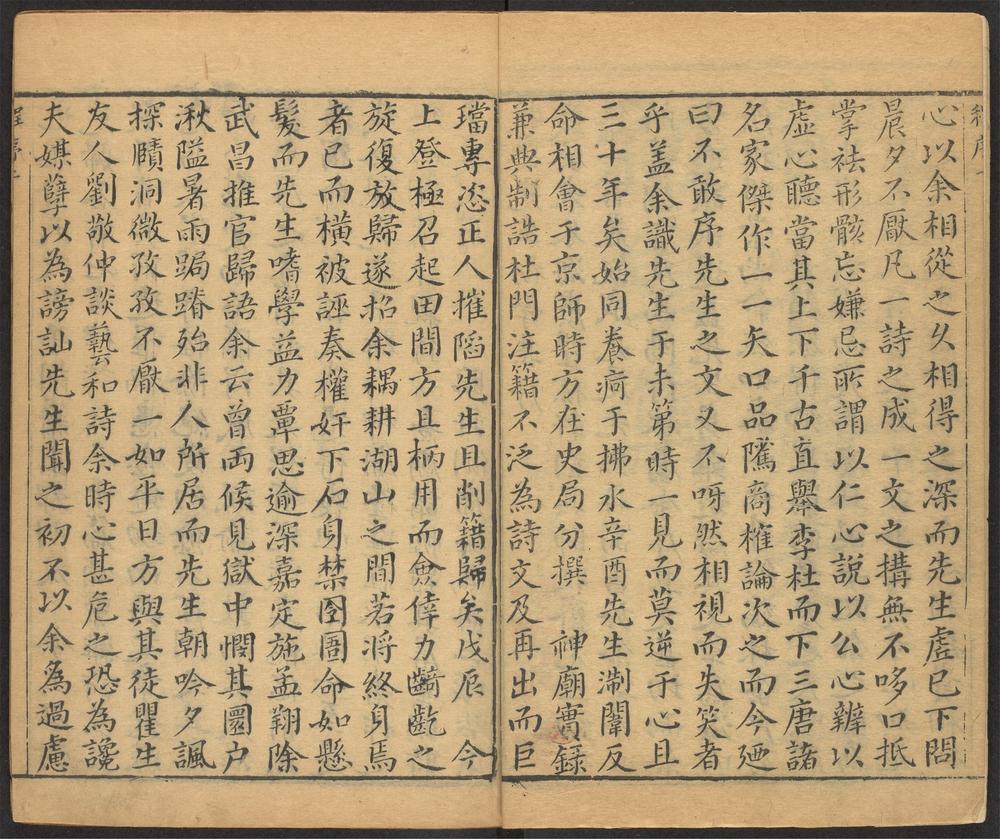 心以余相從之久相得之深而先生虗已下問
晨夕不厭凡一詩之成一文之搆無不哆口抵
掌祛形骸忘嫌忌所謂以仁心說以公心辨以
虛心聽當其上下千古直舉李杜而下三唐諸
名家傑作一一矢口品隲商榷論次之而今廼
曰不敢序先生之文又不呀然相視而失笑者
乎盖余識先生于未第時一見而莫逆于心且
三十年矣始同養疴于拂水辛酉先生淛闈反
命相會于京師時方在史局分撰　神廟實録
兼典制誥杜門注籍不泛為詩文及再出而巨
璫專恣正人摧䧟先生且削籍歸矣戊辰　今
上登極召起田間方且柄用而僉倖力齮齕之
旋復放歸遂招余耦耕湖山之間若將終身焉
者已而橫被誣奏權奸下石身禁囹圄命如懸
髪而先生嗜學益力覃思逾深嘉定施孟翔除
武昌推官歸語余云曾両候見獄中憫其圜户
湫隘暑雨跼蹐殆非人所居而先生朝吟夕諷
探賾洞微孜孜不厭一如平日方與其徒瞿生
友人劉敬仲談藝和詩余時心甚危之恐為讒
夫媒孽以為謗訕先生聞之初不以余為過慮
程序二